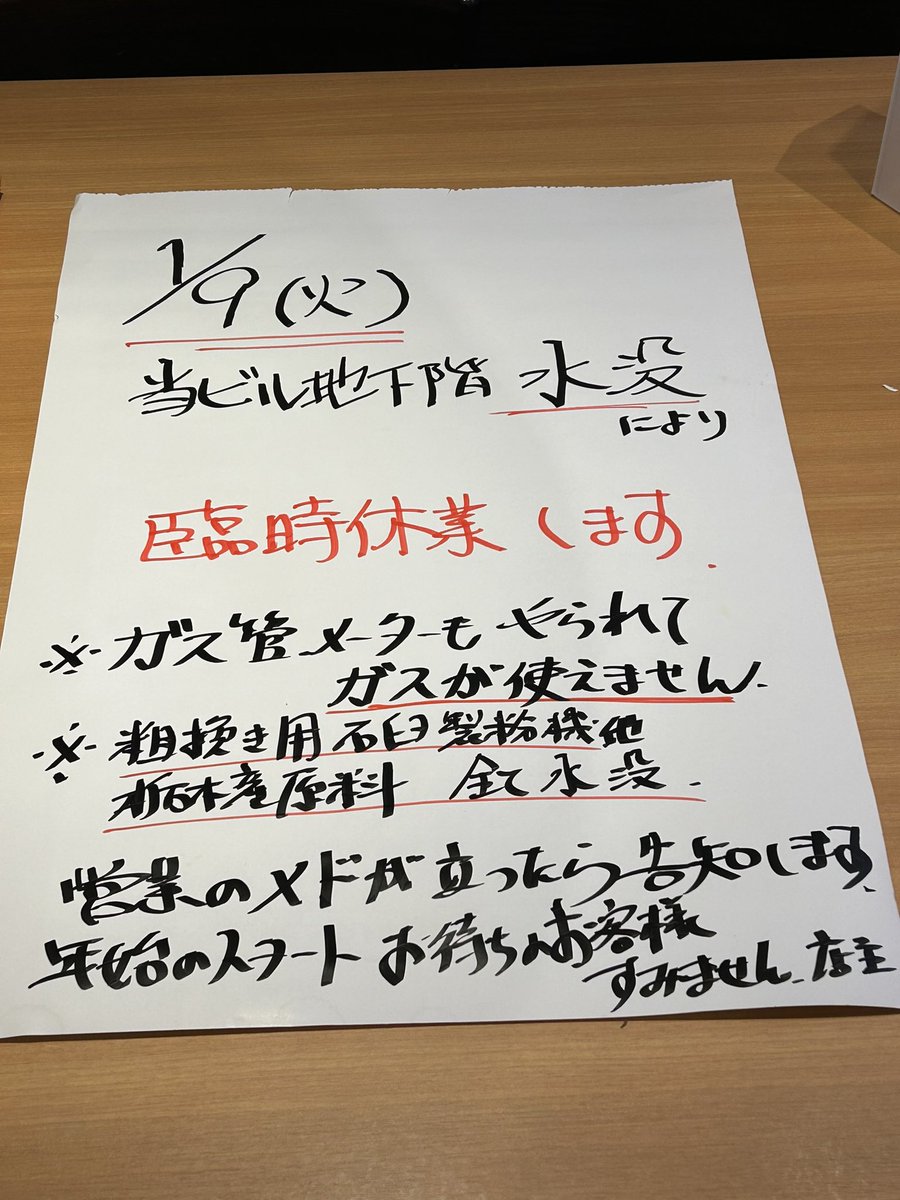 1/9(火)
当ビル地下階 水没
により
臨時休業します.
※ガス管メーターもやられて
ガスが使えません.
※粗挽き用石臼製粉機他
栃木産原料 全て水没.
営業のメドが立ったら告知します.
年始のスタートお待ちのお客様
すみません.店主